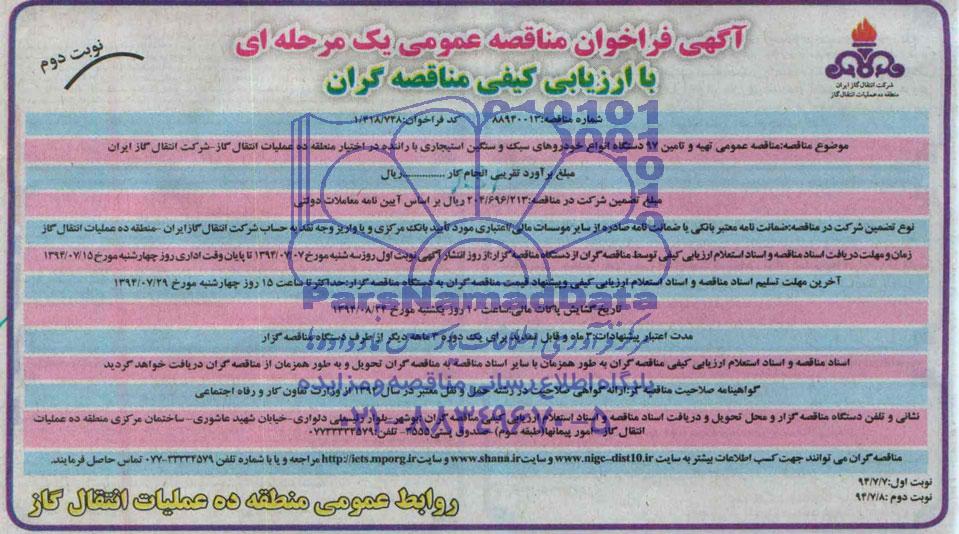 آگهی فراخوان مناقصه عمومی یک مرحله ای
با ارزیابی کیفی مناقصه گران
نوبت دوم
شرکت انتقال گاز ایران
منطقه ده عملیات انتقال گاز
شماره مناقصه:۸۸۹۴۰۰۱۳ کد فراخوان:۱/۴۱۸/۷۳۸
موضوع مناقصه:مناقصه عمومی تهیه و تامین ۹۷ دستگاه انواع خودروهای سبک و سنگین استیجاری با راننده در اختیار منطقه ده عملیات انتقال گاز-شرکت انتقال گاز ایران
مبلغ برآورد تقریبی انجام کار ..............ریال
مبلغ تضمین شرکت در مناقصه:۲۰۴/۶۹۶/۲۱۳ ریال بر اساس آیین نامه معاملات دولتی
نوع تضمین شرکت در مناقصه:ضمانت نامه معتبر بانکی یا ضمانت نامه صادره از سایر موسسات مالی/اعتباری مورد تأیید بانک مرکزی و یا واریز وجه نقد به حساب شرکت انتقال گاز ایران -منطقه ده عملیات انتقال گاز
زمان و مهلت دریافت اسناد مناقصه و اسناد استعلام ارزیابی کیفی توسط مناقصه گران از دستگاه مناقصه گزار:از روز انتشار آگهی نوبت اول روز سه شنبه مورخ ۱۳۹۴/۰۷/۰۷ تا پایان وقت اداری روز چهارشنبه مورخ ۱۳۹۴/۰۷/۱۵
آخرین مهلت تسلیم اسناد مناقصه و اسناد استعلام ارزیابی کیفی و پیشنهاد قیمت مناقصه گران به دستگاه مناقصه گزار:حداکثر تا ساعت ۱۵ روز چهارشنبه مورخ ۱۳۹۴/۰۷/۲۹
تاریخ گشایش پاکات مالی:ساعت ۱۰ روز یکشنبه مورخ ۱۳۹۴/۰۸/۲۴
مدت اعتبار پیشنهادات:۳ ماه و قابل تمدید برای یک دوره ۳ ماهه دیگر از طرف دستگاه مناقصه گزار
اسناد مناقصه و اسناد استعلام ارزیابی کیفی مناقصه گران به طور همزمان با سایر اسناد مناقصه به مناقصه گران تحویل و به طور همزمان از مناقصه گران دریافت خواهد گردید
گواهینامه صلاحیت مناقصه گر:ارائه گواهی صلاحیت در رشته حمل و نقل معتبر در سال ۱۳۹۴ از وزارت تعاون کار و رفاه اجتماعی
نشانی و تلفن دستگاه مناقصه گزار و محل تحویل و دریافت اسناد مناقصه و اسناد استعلام ارزیابی کیفی مناقصه گران:بوشهر-بلوار رئیسعلی دلواری-خیابان شهید عاشوری-ساختمان مرکزی منطقه ده عملیات
انتقال گاز- امور پیمانها(طبقه سوم) صندوق پستی:۳۵۵۵-تلفن:۰۷۷۳۳۳۳۴۵۷۹
مناقصه گران می توانند جهت کسب اطلاعات بیشتر به سایت www.nigc-dist10.ir و سایت www.shana.ir و سایت http://iets.mporg.ir مراجعه و یا با شماره تلفن ۳۳۳۳۴۵۷۹-۰۷۷ تماس حاصل فرمایند.
نوبت اول:۹۴/۷/۷
نوبت دوم :۹۴/۷/۸
روابط عمومی منطقه ده عملیات انتقال گاز
ParsNamadData
پایگاه اطلاع رسانی مناقصه و مزایده
۰۲۱-۸۸۳۴۹۶۷۰-۵